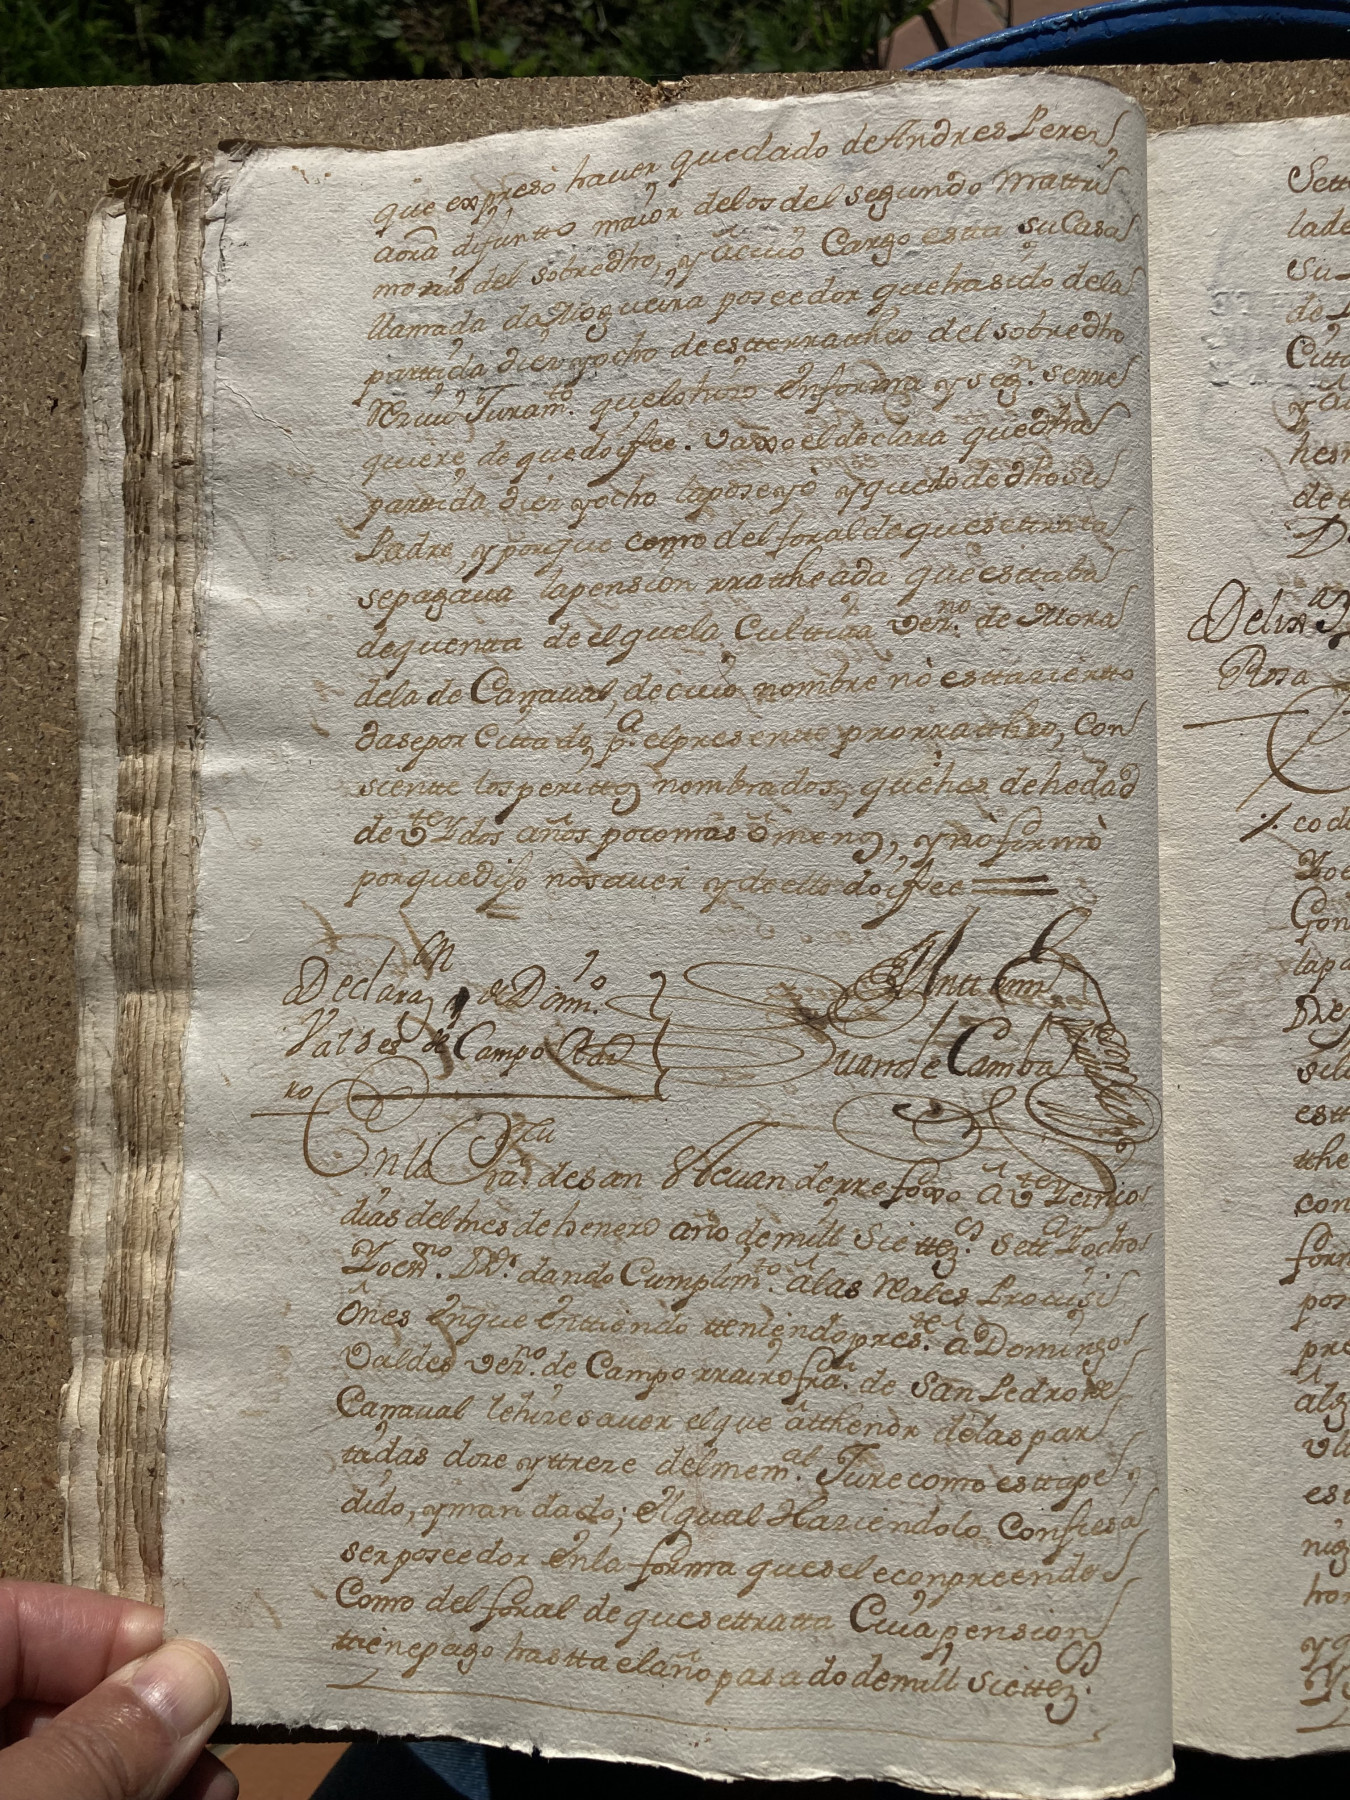 que expresò haver quedado de Andres Perez,
aora difuntto maior delos del segundo Mattri
monio del sobredho, y âcuio Cargo estta su Casa
llamada da Nogueira poseedor que ha sido dela
parttida diez yocho de estterrattheo del sobredho
Juramto. quelo hizo en forma y segn. serre
quiere de quedoyfee. vaxo el declara quedha
parttida diez yocho laposeyò y quedo de dho su
Padre, y porque como del foral de quesettratta
sepagava lapension rrattheada que esttaba
dequentta de el quela Culttiva vezno. de Mora
dela de Carraual, de cuio nombre nò esttazientto
dasepor Cittado, pa. elpresentte prorrattheo, Con
siente los perittos nombrados, quehes dehedad
de vtey dos años pocomas ô menos, y nò firmò
porquedijo nosaver y de ello doifee
Declarazn de Domo.
Valdes de Campo Rai
ro
Antte mi
Juan de Camba
En la Fra. desan esteuan derrefoxo â vtey cinco
dias delmes de henero año demill Siettezs. sett.a Yocho
Yo esno. Rr. dando Cumplimto. âlas Reales Provisi
ônes enque enttiendo tteniendo preste. a Domingo
Valdes vezno. de Campo rrairo fra. de San Pedro de
Carraual lehize saver el que âtthenor delas par
ttidas doze yttreze delmemal. Jure como esttape
dido, ymandado; el qual Haziendolo Confiesa
ser poseedor enla forma quesele conpreende
Como del foral de quesettratta Cuia pension
ttiene pago hastta el año pasado demill Siettezs.
Sett
lade
Su
de
Citta
y a
hesn
de
Delxn
Rosa
co di
Yoe
Gon
lapa
Rey
sela
estt
tthe
con
form
pos
pre
alg
vli
es
nig
hon
yq